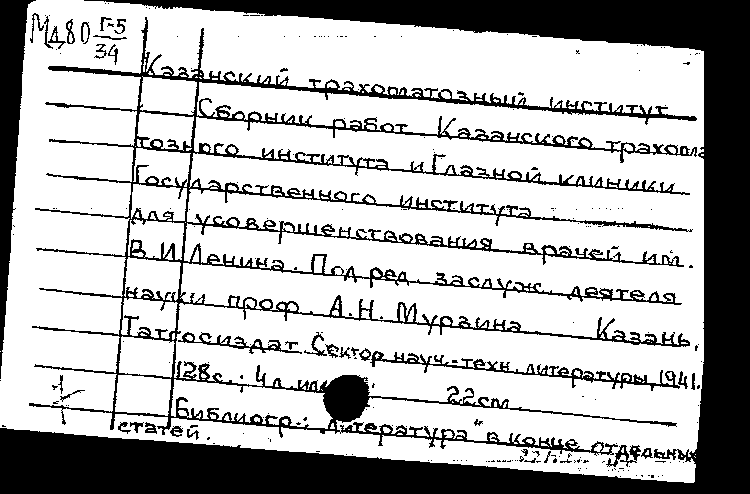 Мд80 Г-5
34
Казанский трахоматозный институт
Сборник работ Казанского трахома
тозного института и Глазной клиники
Государственного института
для усовершенствования врачей им.
В.И.Ленина. Под ред. заслуж. деятеля
науки проф. А.Н. Мурзина. Казань,
Татгосиздат. Сектор науч.-техн. литературы, 1941.
128с.; 4л. 22см.
Библиогр.: "Литература" в конце отдельных
статей.